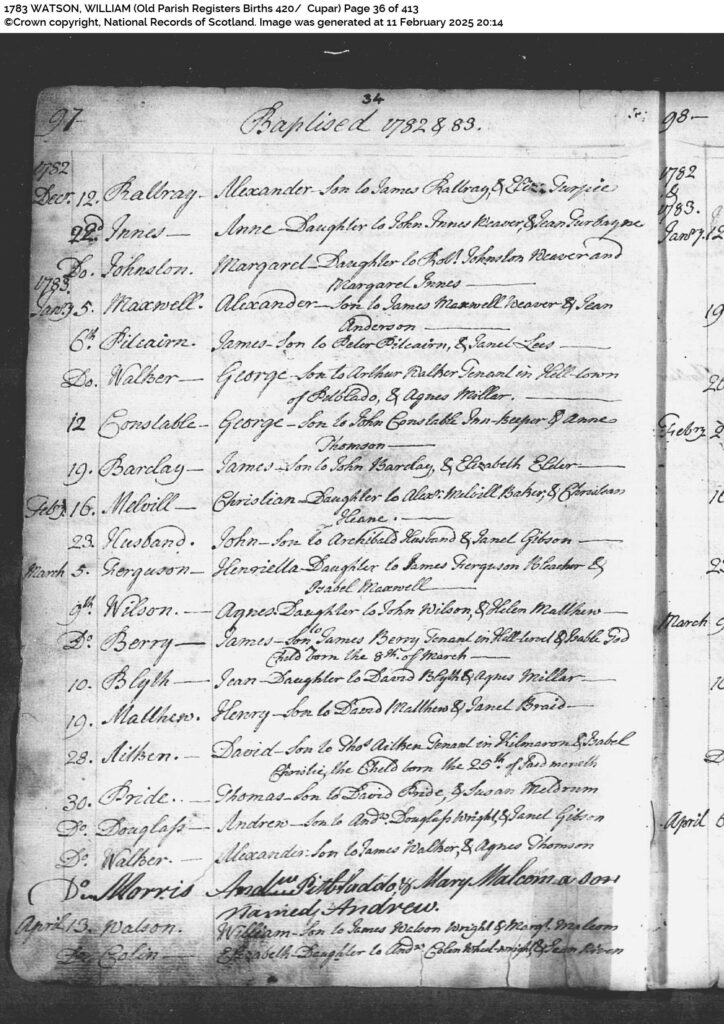 1783 WATSON, WILLIAM (Old Parish Registers Births 420/ Cupar) Page 36 of 413
©Crown copyright, National Records of Scotland. Image was generated at 11 February 2025 20:14
34
97 Baptised 1782 & 83.
1782
Decr. 12. Rattray — Alexander — Son to James Rattray, & Eliz:
22d Innes — Anne — Daughter to John Innes Weaver, & Jean
Do. Johnston. Margaret — Daughter to Robt. Johnston Weaver and
Margaret Innes —
1783.
Janry 5. Maxwell. Alexander — Son to James Maxwell Weaver & Jean
Anderson —
6th. Pitcairn. James — Son to Peter Pitcairn, & Janet Lees —
Do. Walker — George — Son to Arthur Walker Tenant in Hill-town
of & Agnes Miller. —
12 Constable — George — Son to John Constable Inn-keeper & Anne
Thomson —
19. Barclay — James — Son to John Barclay, & Elizabeth Elder —
Febry 16. Melvill — Christian — Daughter to Alexr. Melvill Baker, & Christian
—
23. Husband. John — Son to Archibald Husband & Janet Gibson —
March 5. Ferguson — Henrietta — Daughter to James Ferguson Bleacher &
Isabel Maxwell —
9th. Wilson. — Agnes Daughter to John Wilson, & Helen Matthew —
Do. Berry — James — Son to James Berry Tenant in &
Child born the 8th. of March —
10. Blyth — Jean — Daughter to David Blyth & Agnes Millar —
19. Matthew. Henry — Son to David Matthew & Janet Braid —
28. Aitken. — David — Son to Thos. Aitken Tenant in Kilmaron & Isabel
Christie, the Child born the 25th. of said month
30. Pride. — Thomas — Son to David Pride, & Susan Meldrum
Do. Douglass — Andrew — Son to Andw. Douglass Wright, & Janet Gibson
Do. Walker. — Alexander Son to James Walker, & Agnes Thomson
Do. Morris Andrew & Mary Malcom a son
Named, Andrew.
April 13. Watson. William — Son to James Watson Wright & Margt. Malcom
Do. Colin — Elizabeth Daughter to Andw. Colin Wheel-wright, & Jean
98 —
1782
&
1783.
Janry. 12
19
20
Febry 2
16
23
March 9
10
April 6